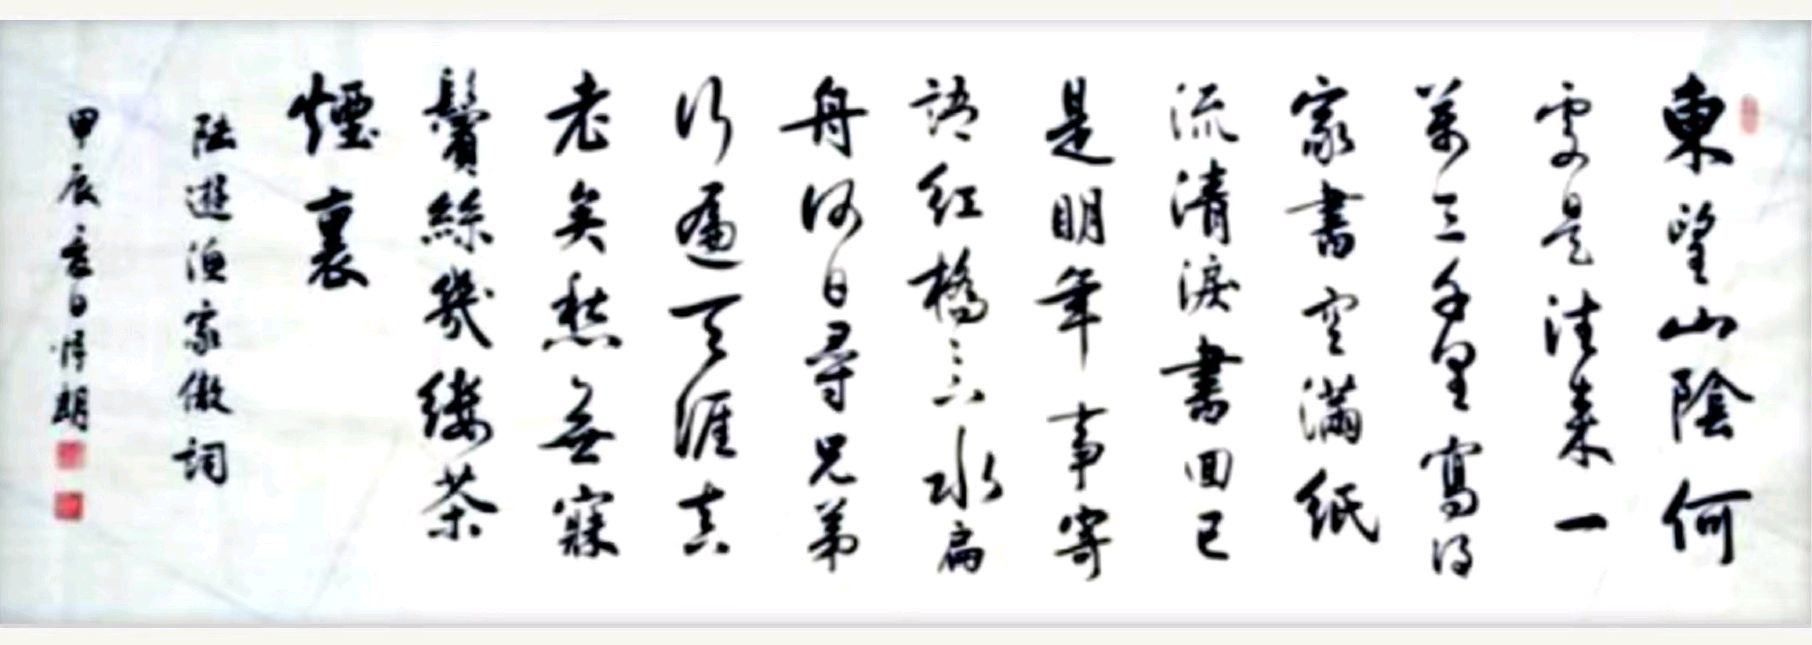 東望山陰何
處是往來一
萬三千里寫得
家書空滿紙
流清淚書回已
是明年事寄
語紅橋橋下水扁
舟何日尋兄弟
行遍天涯真
老矣愁無寐
鬢絲幾縷茶
煙裏
陸遊漁家傲詞
甲辰春日